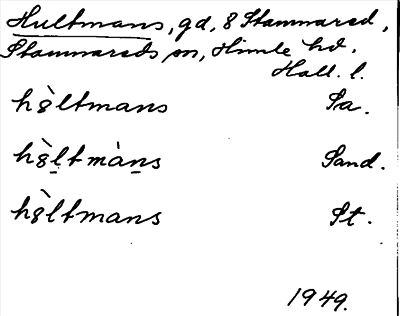 Hultmans, gd, 8 Stammared,
Stammareds sn, Himle hd.
Hall. l.
hò̤ltmans Sa.
hò̤ḻtmàṉs Sand.
hò̤ltmans St.
1949.